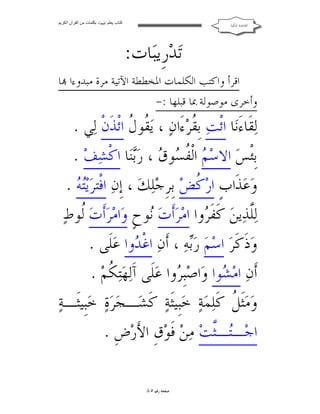 كتاب يعلم تهجيت بكلمات من القرآن الكريم
تَدْرِيبَات:
اقرأ واكتب الكلمات المخططة الآتية مرة مبدوءا بها
وأخرى موصولة بما قبلها :-
لِقَاءَنَا ائْتِ بِقُرْءَانٍ ، يَقُولُ ائْذَنْ لِي .
بِئْسَ الاسْمُ الْفُسُوقُ ، رَبَّنَا اكْشِفْ .
وَعَذَابٍ ارْكُضْ بِرِجْلِكَ ، إِنِ افْتَرَيْتُهُ .
لِلَّذِينَ كَفَرُوا امْرَأَتَ نُوحٍ وَامْرَأَتَ لُوطٍ
وَذَكَرَ اسْمَ رَبِّهِ ، أَنِ اغْدُوا عَلَى .
أَنِ امْشُوا وَاصْبِرُوا عَلَى آلِهَتِكُمْ .
وَمَثَلُ كَلِمَةٍ خَبِيثَةٍ كَشَـــجَرَةٍ خَبِيثَـــةٍ
اجْـــتُـــثَّتْ مِنْ فَوْقِ الأَرْضِ .